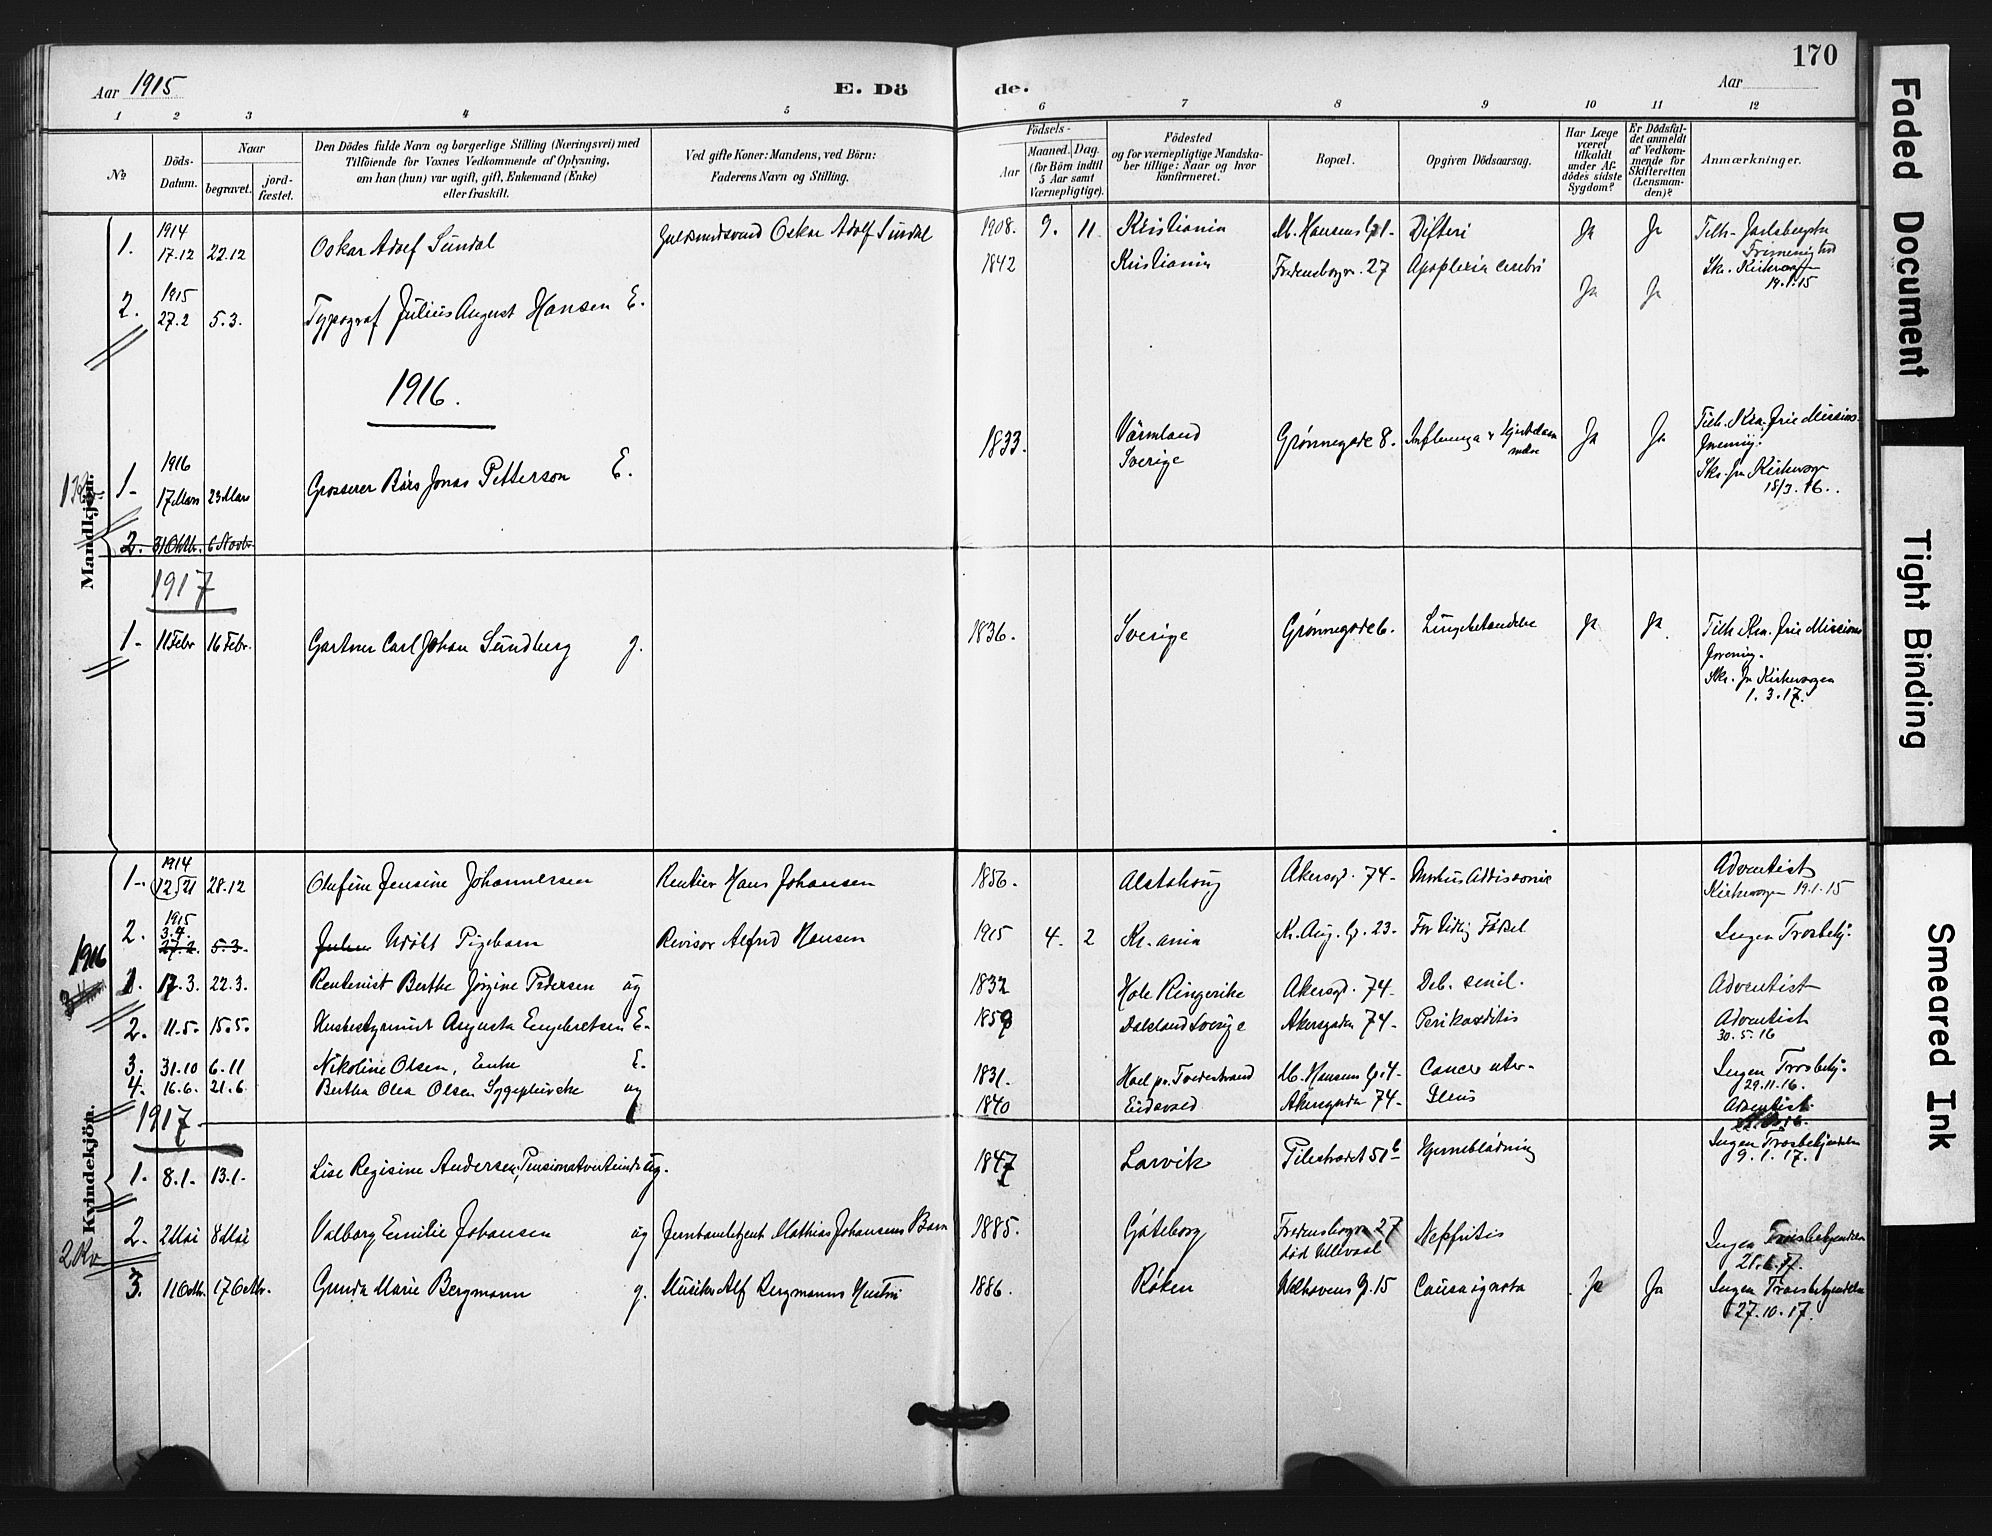 170
Aar 1915
E. Dö
de.
Aar
1 2 3 4 5 6 7 8 9 10 11 12
No
Döds-Datum.
Naar
begravet.
jord-fæstet.
Den Dödes fulde Navn og borgerlige Stilling (Næringsvei) med
Tilföiende for Voxnes Vedkommende af Oplysning,
om han (hun) var ugift, gift, Enkemand (Enke)
eller fraskilt.
Ved gifte Koner: Mandens, ved Börn:
Faderens Navn og Stilling.
Födsels-
Aar
Maaned.
Dag
(for Börn indtil
5 Aar samt
Værnepligtige).
Födested
og for værnepligtige Mandska-
ber tillige: Naar og hvor
konfirmeret.
Bopæl.
Opgiven Dödsaarsag.
Har Læge
været
tilkaldt
under Af-
dödes sidste
Sygdom?
Er Dödsfal-
det anmeldt
af Vedkom-
mende for
Skifteretten
(Lensman-
den)?
Anmærkninger.
Mandkjön.
1. 1914 17.12 22.12 Oskar Adolf Sundal Oskar Adolf Sundal 1908. 9. 11 Kristiania M. Hansens Difteri Ja Ja
19.1.15
2. 1915 27.2 5.3. Typograf Julius August Hansen E. 1842 Kristiania Fredensborgv. 27 Apoplexia cerebri Ja Ja
1916.
1. 1916 17 Mars 23 Mars Grosserer Jonas Petterson E. 1833. Värmland Sverige Grønnegade 8. Influenza Ja Ja Tilh. Kra. frie Missions
18/3.16.
2. 31 Oktb. 6 Novbr.
1917
1. 11 Febr 16 Febr. Gartner Carl Johan Sundberg g. 1836. Sverige Grønnegade 6. Lungebetændelse Ja Ja Tilh. Kra. frie Missions
forening.
Skr. fra Kirkevergen
1.3.17.
Kvindekjön.
1. 1914 28.12 Olufine Jensine Johannessen Rentier Hans Johansen 1856. Alstahoug Akersgd. 74. Morbus Addisonii Adventist
Kirkevergen 19.1.15
2. 1915 3.4. 27.2. 5.3. Udøbt Pigebarn Revisor Alfred Hansen 1915 4. 2 Kr.ania Kr. Aug. G. 23. For tidlig Fødsel Ingen Trosbekj.
1916
1. 17.3. 22.3. Rentenist Berthe Jørgine Pedersen ug 1832 Hole Ringerike Akersgd. 74. Deb. senil. Adventist
2. 11.5. 15.5. Augusta Engebretsen E. 1859 Dalsland Sverige Akersgaden 74. Perikarditis Adventist
30.5.16
3. 31.10 6.11 Nikoline Olsen, Enke E. 1831. Tvedestrand M. Hansens G. 4. Cancer uter. Ingen Trosbekj.
29.11.16.
4. 16.6. 21.6. Bertha Olea Olsen Sygepleierske ug 1840 Eidsvold Akersgaden 74. Ileus Adventist
1917.
1. 8.1. 13.1. Lise Regisine Andersen, ug. 1847 Larvik Pilestrædet 51b Hjerneblødning Ingen Trosbekjendelse
9.1.17.
2. 2 Mai 8 Mai Valborg Emilie Johansen ug Mathias Johansens Barn 1885. Göteborg Fredensborgv. 27
død Ullevaal Nefritis Ingen Trosbekjendelse
3. 11 Oktb. 17 Oktbr. Gunda Marie Bergmann g. Musiker Alf Bergmanns Hustru 1886. Røken Welhavens G. 15 Causa ignota Ja Ja Ingen Trosbekjendelse
27.10.17.
2 Kv
Faded Document
Tight Binding
Smeared Ink